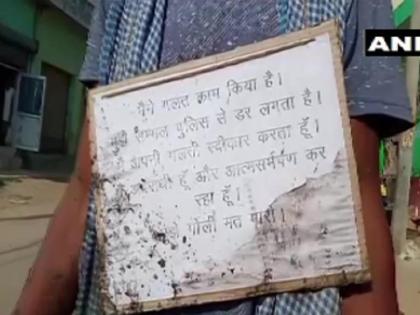 ANI
मैंने गलत काम किया है।
सम्भल पुलिस से डर लगता है।
अपनी गलती स्वीकार करता हूँ।
हूँ और आत्मसर्मपण कर
रहा हूँ।
गोली मत मारो।